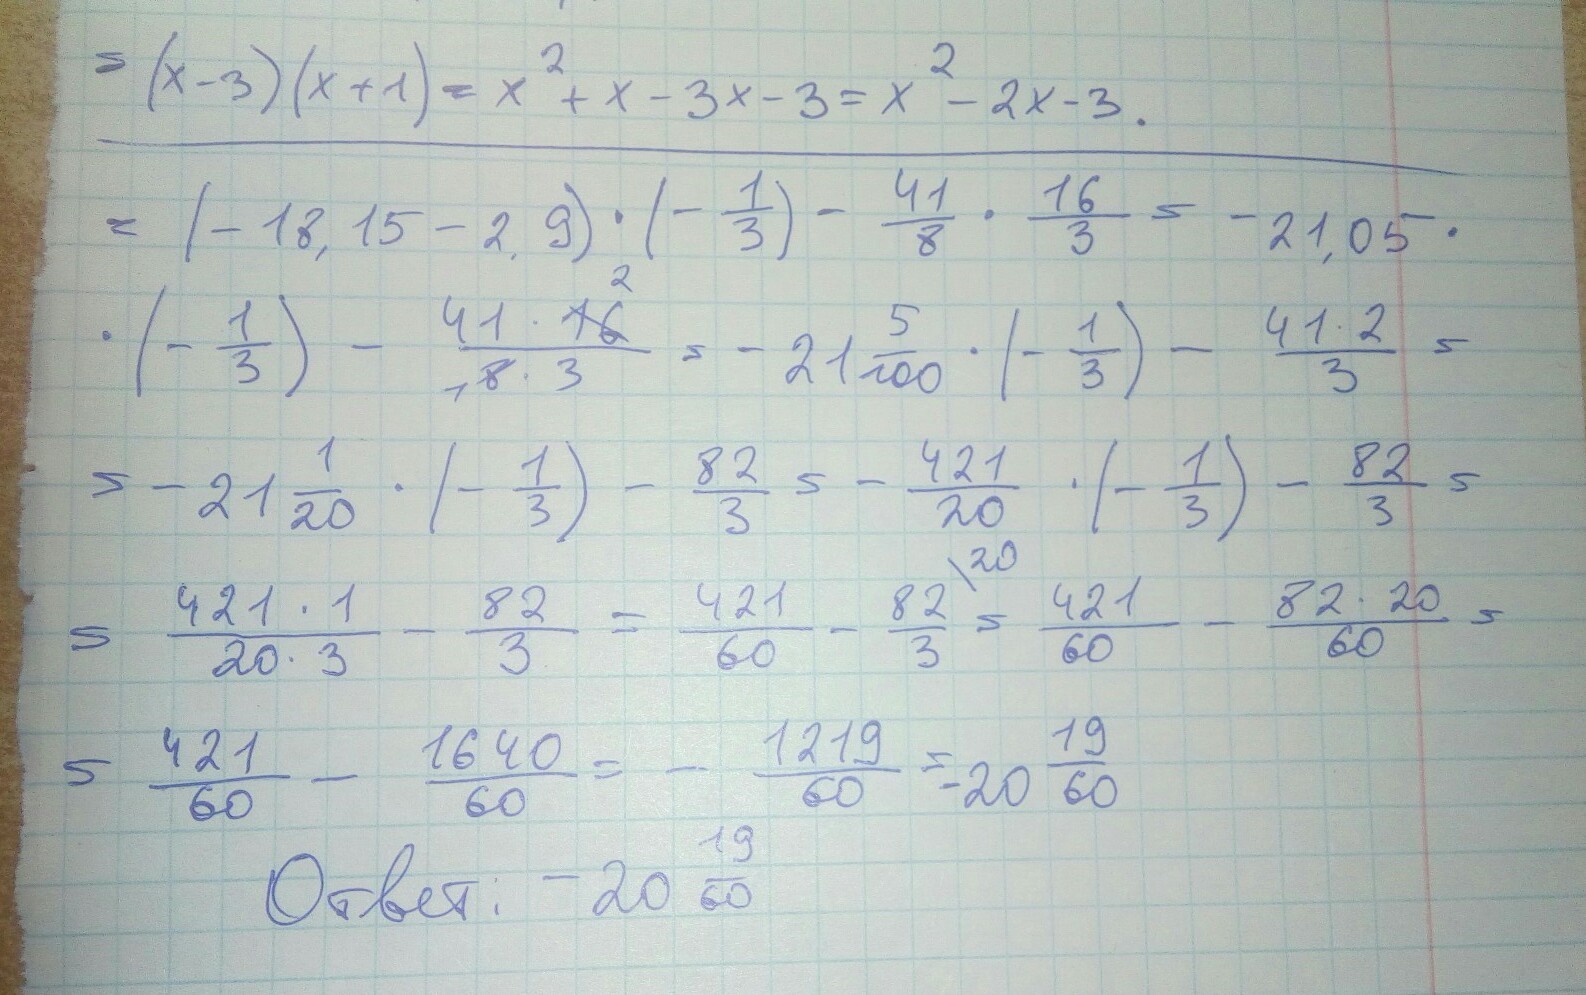 = (x-3)(x+1) = x² + x - 3x - 3 = x² - 2x - 3.
= (-18,15 - 2,9) · (-1/3) - 41/8 · 16/3 = -21,05 ·
· (-1/3) - (41·16 2)/(1 8·3) = -21 5/100 · (-1/3) - (41·2)/3 =
= -21 1/20 · (-1/3) - 82/3 = -421/20 · (-1/3) - 82/3 =
= (421·1)/(20·3) - 82/3 = 421/60 - 82/3 \20 = 421/60 - (82·20)/60 =
= 421/60 - 1640/60 = -1219/60 = -20 19/60
Ответ: -20 19/60